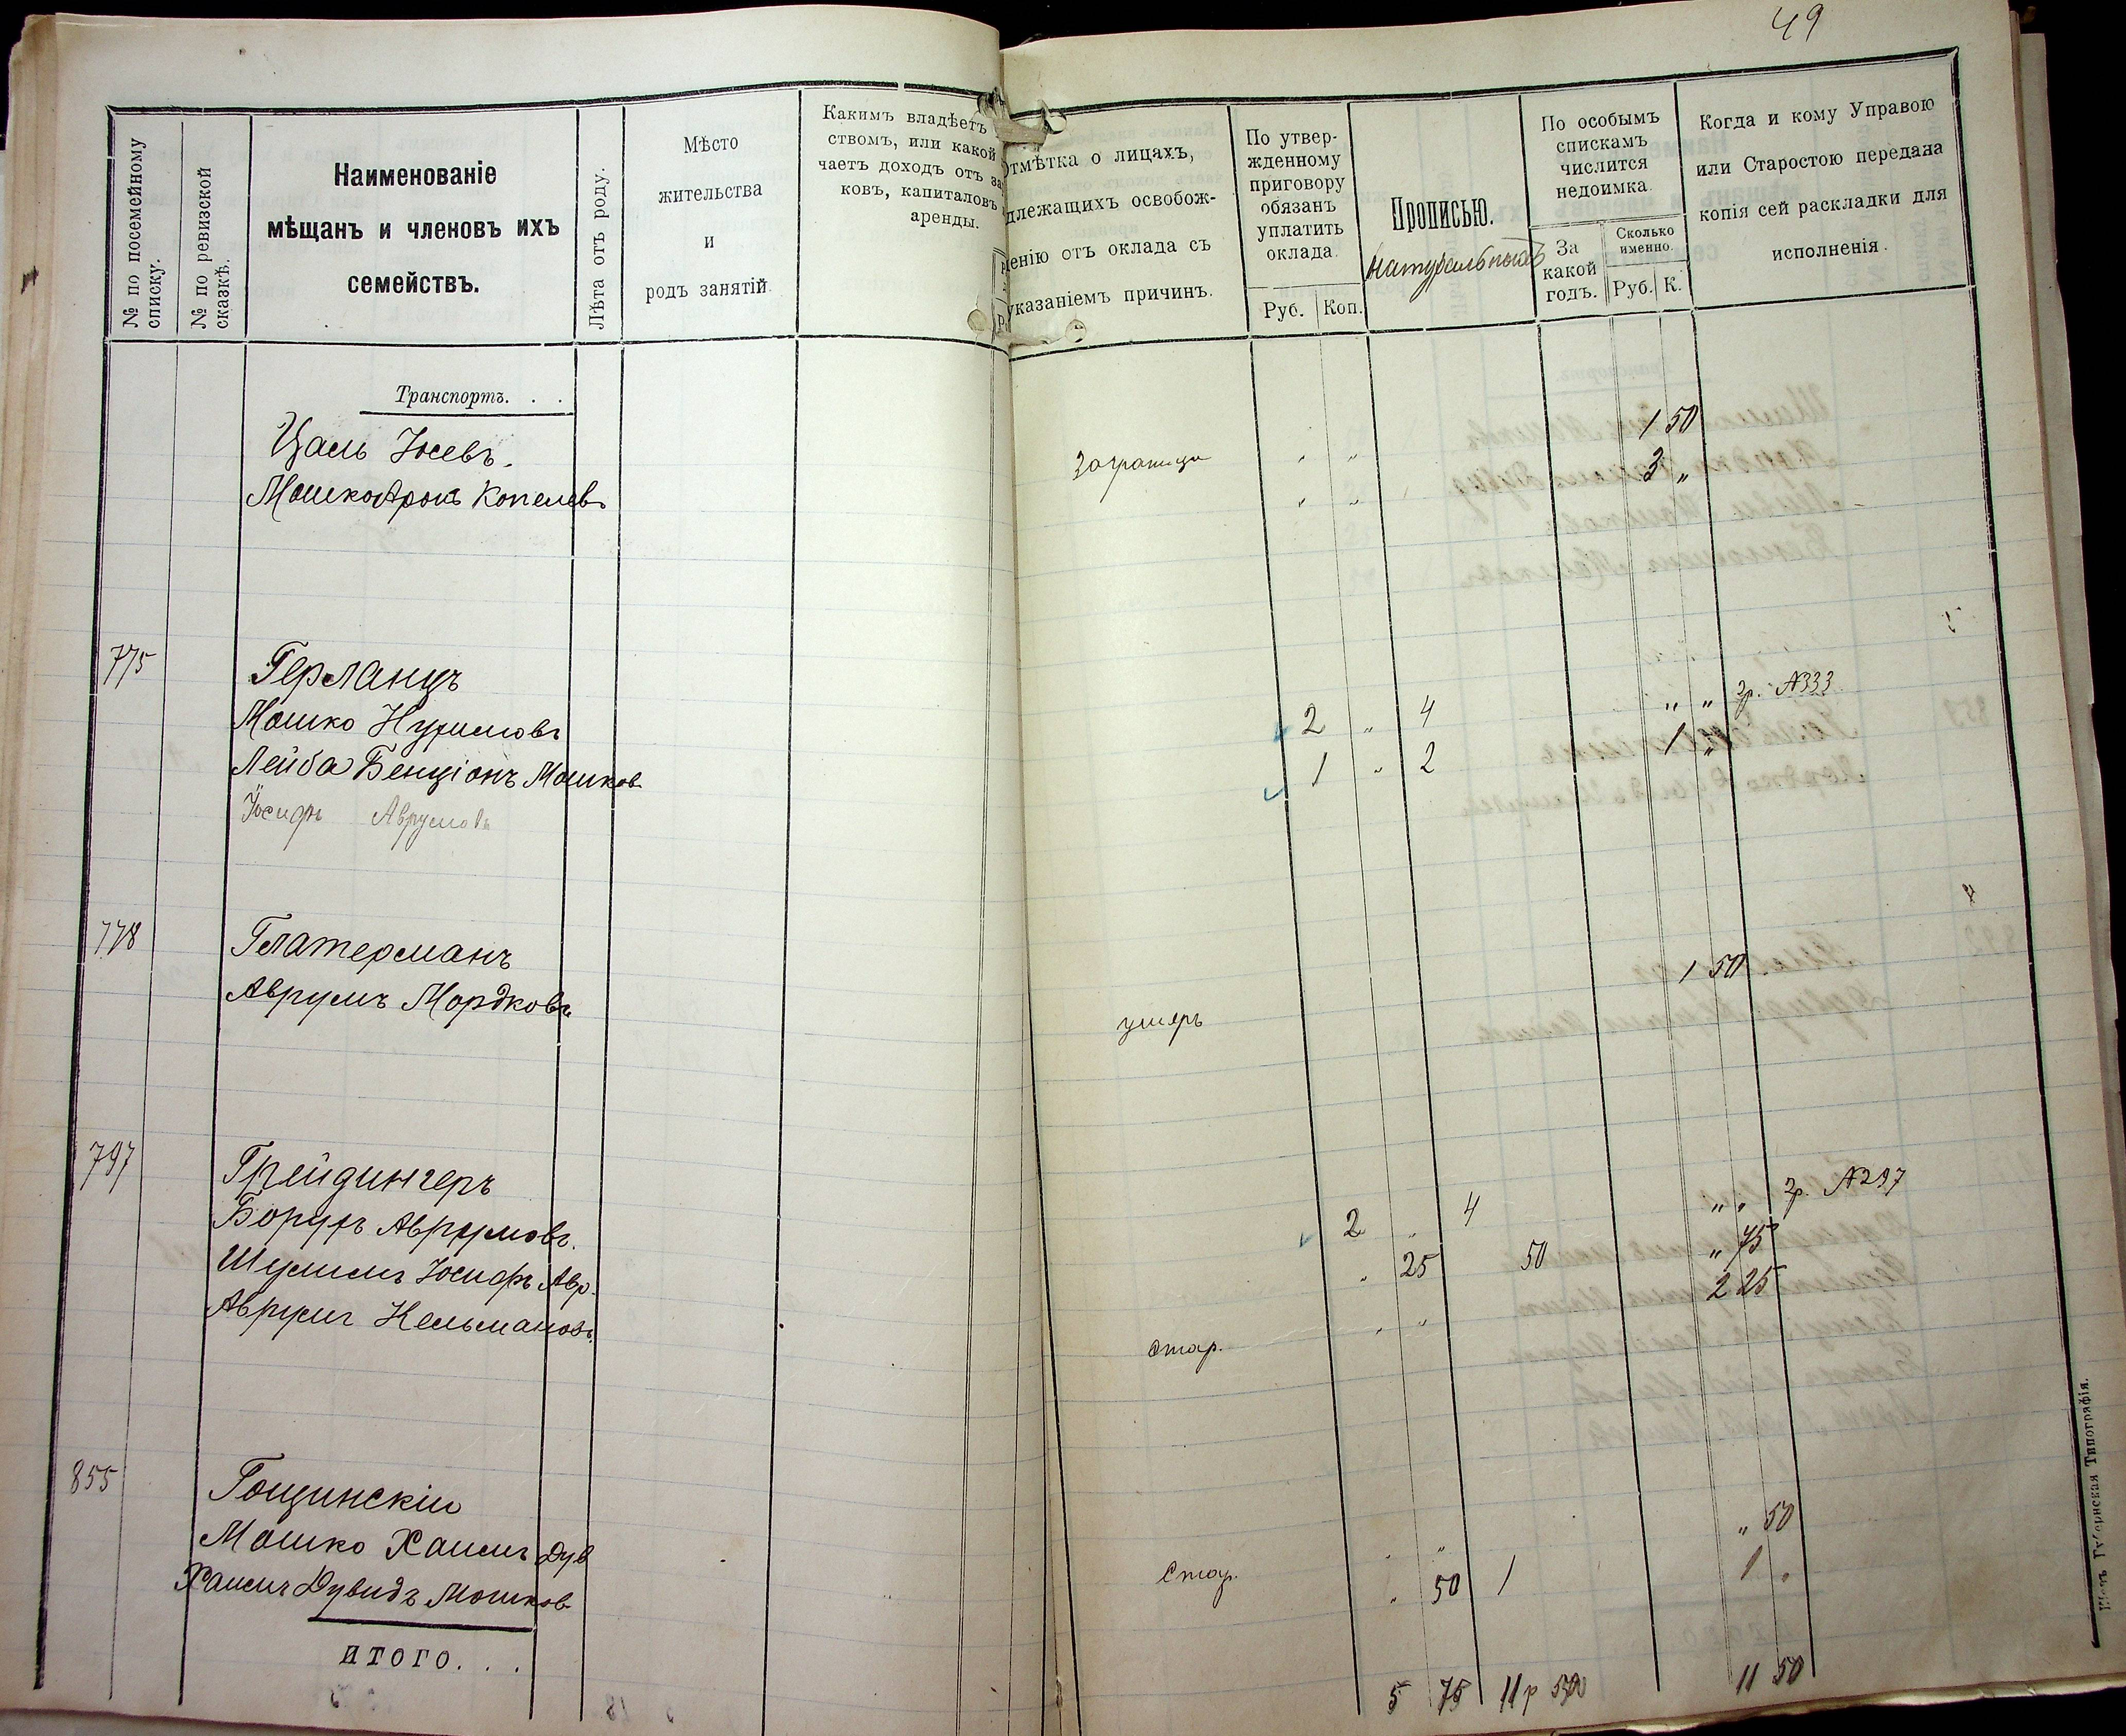 49
№ по посемейному списку.
№ по ревизской сказкѣ.
Наименованіе
мѣщанъ и членовъ ихъ
семействъ.
Лѣта отъ роду.
Мѣсто
жительства
и
родъ занятій
Какимъ владѣетъ
ствомъ, или какой
чаетъ доходъ отъ за
ковъ, капиталовъ
аренды.
Отмѣтка о лицахъ,
длежащихъ освобож-
денію отъ оклада съ
указаніемъ причинъ.
По утвер-
жденному
приговору
обязанъ
уплатить
оклада.
Руб. Коп.
Прописью.
По особымъ
спискамъ
числится
недоимка.
За
какой
годъ.
Сколько
именно.
Руб. К.
Когда и кому Управою
или Старостою передана
копія сей раскладки для
исполненія.
Транспортъ. . .
Цаль Іосевъ. заграницу " " 1 50
Мошко Аронъ Копелевъ " " 3 "
775 Герланцъ
Мошко Нухимовъ 2 " 4 " " Зр. №333
Лейба Бенціонъ Мошков 1 " 2 1 "
Іосифъ Аврумовъ
778 Глатерманъ
Аврумъ Мордковъ умеръ 1 50
797 Грейдингеръ
Борухъ Аврумовъ. 2 " 4 " " Зр. №297
Шулимъ Іосифъ Авр. " 25 50 " 75
Аврумъ Нельмановъ. Стар. " " 2 25
855 Гощинскій
Мошко Хаимъ Дув Стар. " " " 50
Хаимъ Дувидъ Мошков " 50 1 1 "
ИТОГО. . . 5 75 11 р 50 11 50
Губернская Типографія.